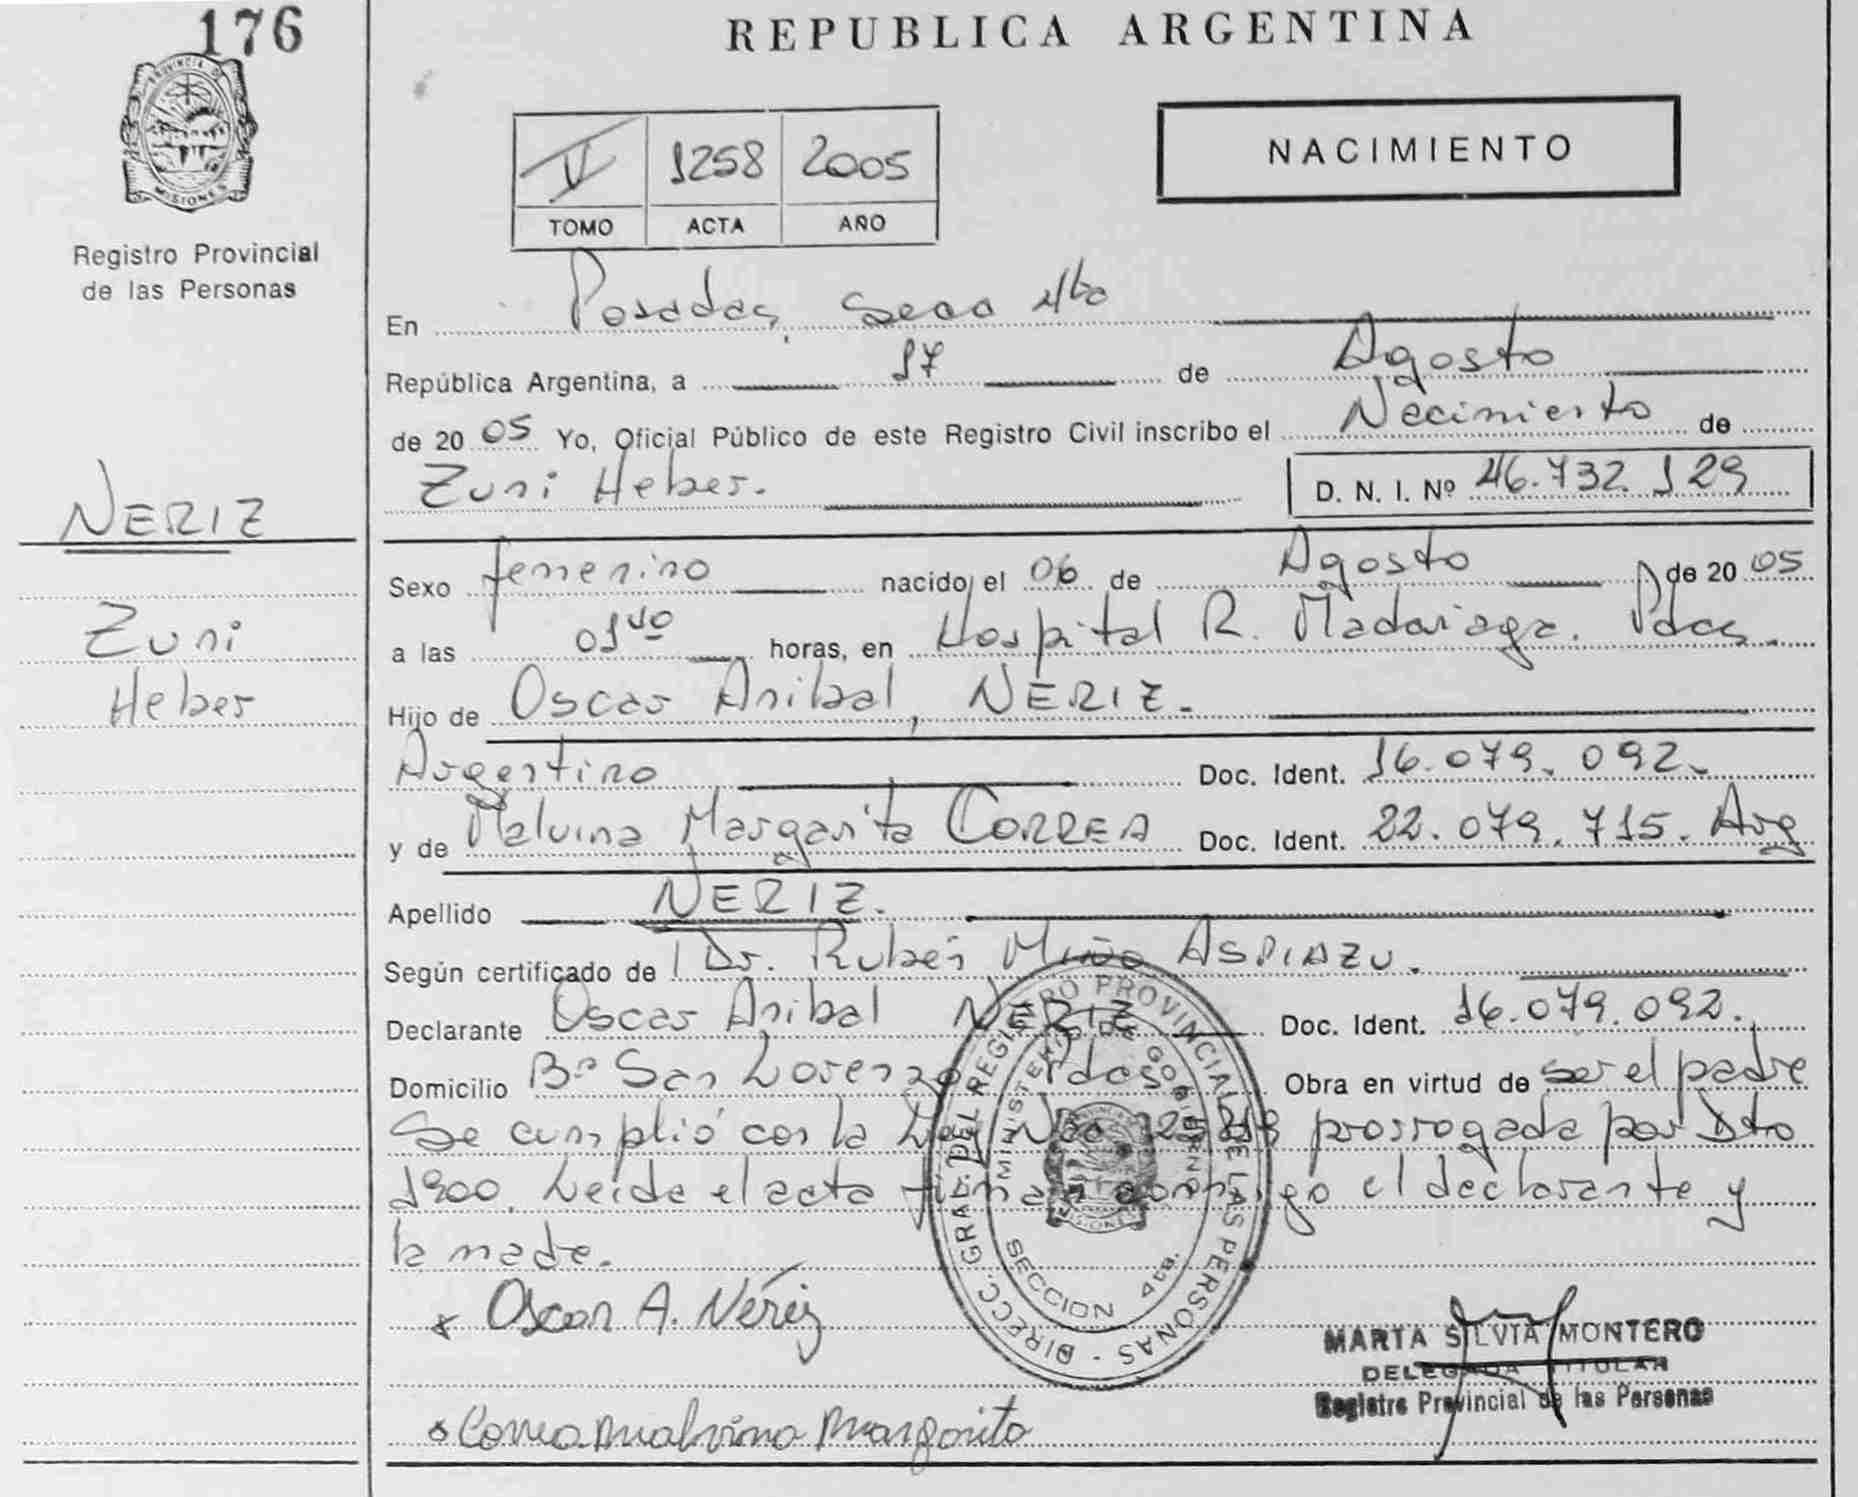 176
REPUBLICA ARGENTINA
PROVINCIA DE
MISIONES
Registro Provincial
de las Personas
V 1258 2005
TOMO ACTA AÑO
NACIMIENTO
En Posadas, Secc 4ta
República Argentina, a 17 de Agosto
de 2005 Yo, Oficial Público de este Registro Civil inscribo el Nacimiento de
Zuni Heber. D. N. I. Nº 46.732.129
NERIZ
Zuni
Heber
Sexo femenino nacido el 06 de Agosto de 2005
a las 01 40 horas, en Hospital R. Madariaga. Pdas.
Hijo de Oscar Anibal, NERIZ.
Argentino Doc. Ident. 16.079.092.
y de Malvina Margarita CORREA Doc. Ident. 22.079.715. Arg
Apellido NERIZ.
Según certificado de Dr. Rubén Miño ASPIAZU.
Declarante Oscar Anibal NERIZ Doc. Ident. 16.079.092.
Domicilio Bº San Lorenzo Pdas Obra en virtud de ser el padre
Se cumplió con la Ley Nro prorrogada por Dto
1900. Leida el acta firman conmigo el declarante y
la madre.
x Oscar A. Nériz
x Correa Malvina Margarita
DIRECC. GRAL. DEL REGISTRO PROVINCIAL DE LAS PERSONAS -
MINISTERIO DE GOBIERNO
SECCION 4ta.
MARTA SILVIA MONTERO
DELEGADA TITULAR
Registro Provincial de las Personas